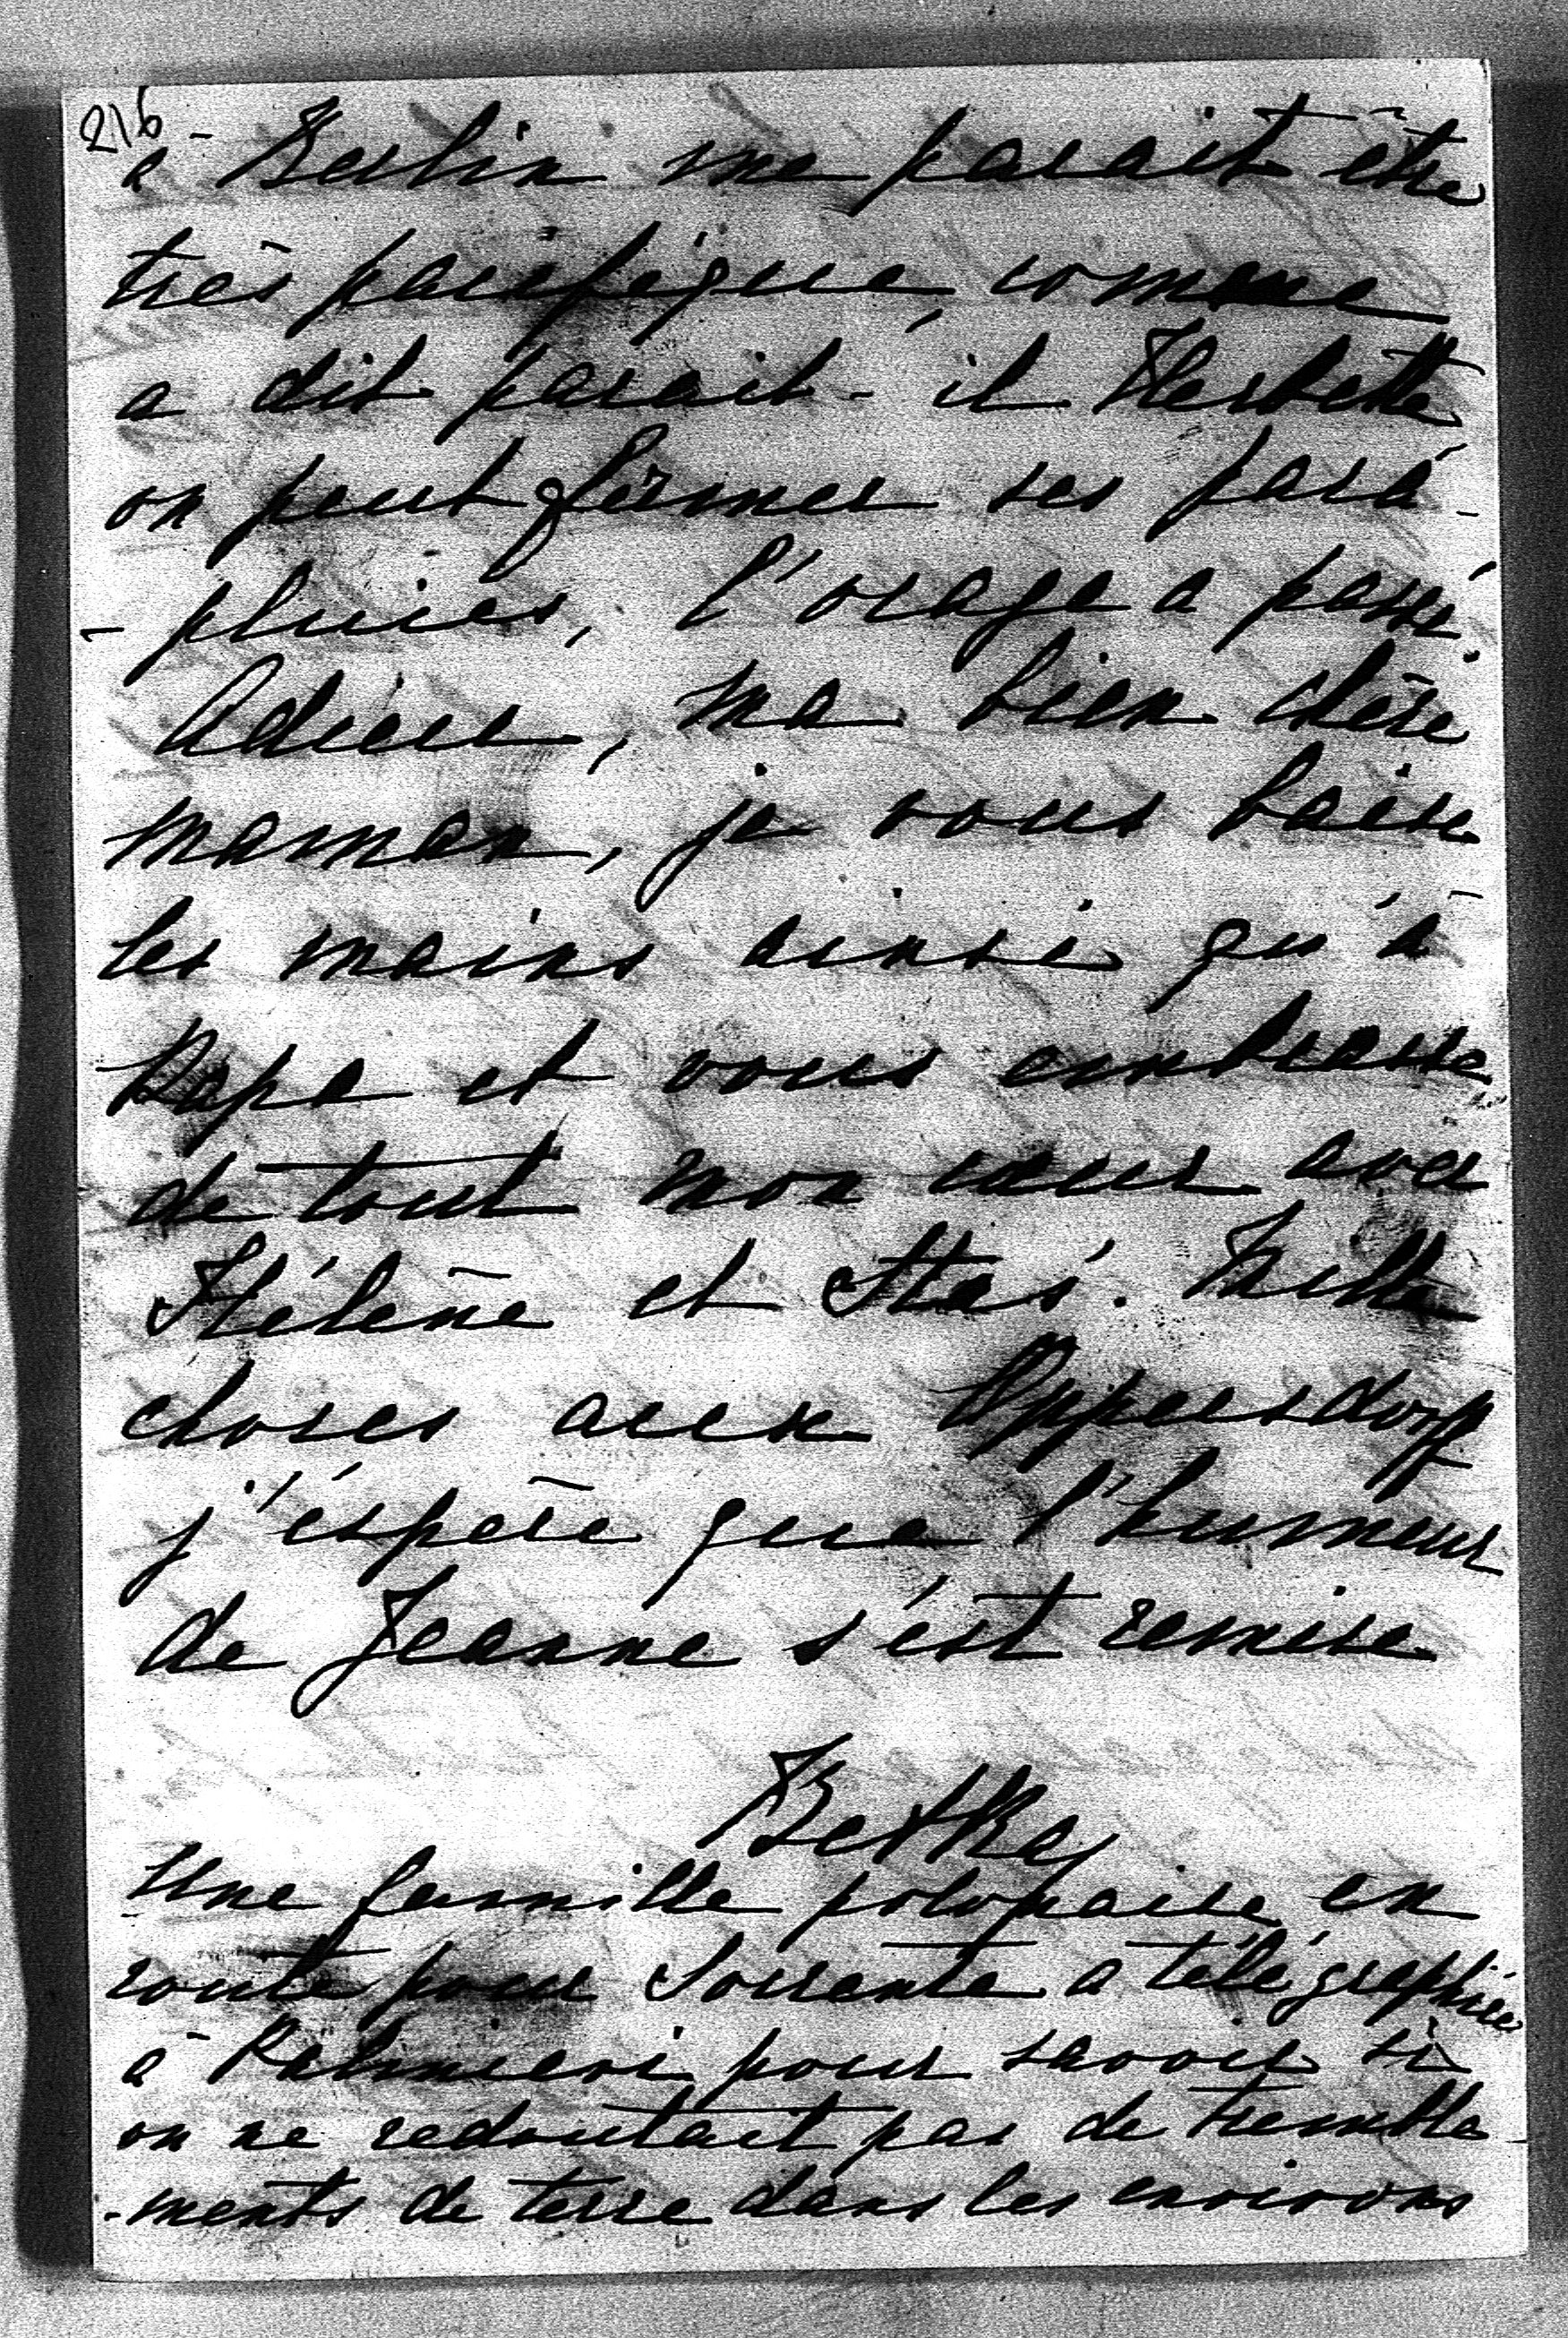 216
à Berlin me parait être
très pacifique, comme
a dit parait-il Herbette
on peut fermer ses para-
-pluies, l'orage a passé.
Adieu, ma bien chère
maman, je vous baise
les mains ainsi qu'à
Papa et vous embrasse
de tout mon cœur avec
Hélène et Staś. Mille
choses aux Oppersdorff
j'éspère que l'humeur
de Jeanne s'est remise
Betka
Une famille polonaise en
route pour Sorrente a télégraphiée
à Palmieri pour savoir si
on ne redoutait pas de tremble-
-ments de terre dans les environs